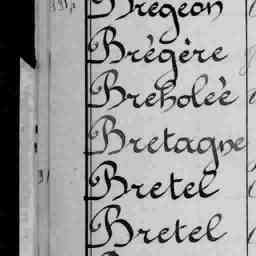 Brégeon
Brégère
Breholée
Bretagne
Bretel
Bretel